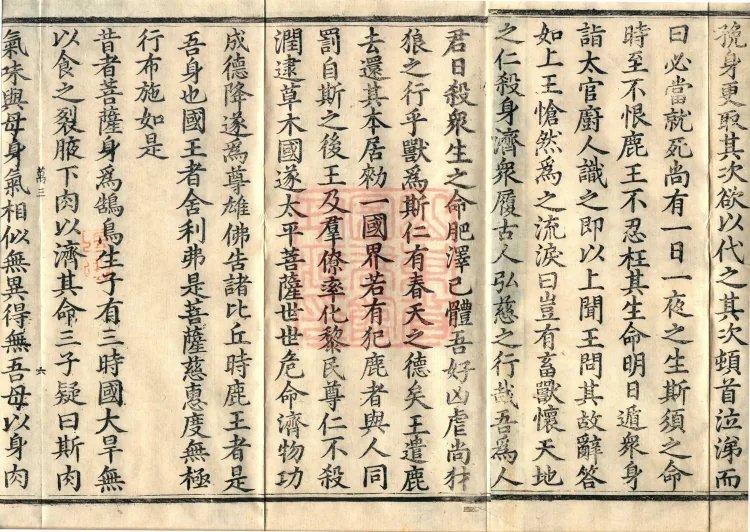 㝃身更取其次欲以代之其次頓首泣涕而
曰必當就死尚有一日一夜之生斯須之命
時至不恨鹿王不忍枉其生命明日遁衆身
詣太官廚人識之即以上聞王問其故辭答
如上王愴然爲之流淚曰豈有畜獸懷天地
之仁殺身濟衆履古人弘慈之行哉吾爲人
君日殺衆生之命肥澤己體吾好凶虐尚犲
狼之行乎獸爲斯仁有奉天之德矣王遣鹿
去還其本居勑一國界若有犯鹿者與人同
罰自斯之後王及羣僚率化黎民尊仁不殺
潤逮草木國遂太平菩薩世世危命濟物功
成德隆遂爲尊雄佛告諸比丘時鹿王者是
吾身也國王者舍利弗是菩薩慈惠度無極
行布施如是
昔者菩薩身爲鵠鳥生子有三時國大旱無
以食之裂腋下肉以濟其命三子疑曰斯肉
萬三
六
氣味與母身氣相似無異得無吾母以身肉